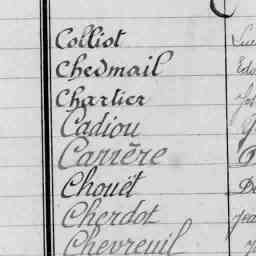 Colliot
Chevmail
Chartier
Cadiou
Carrère
Chouët
Cherdot
Chevreuil